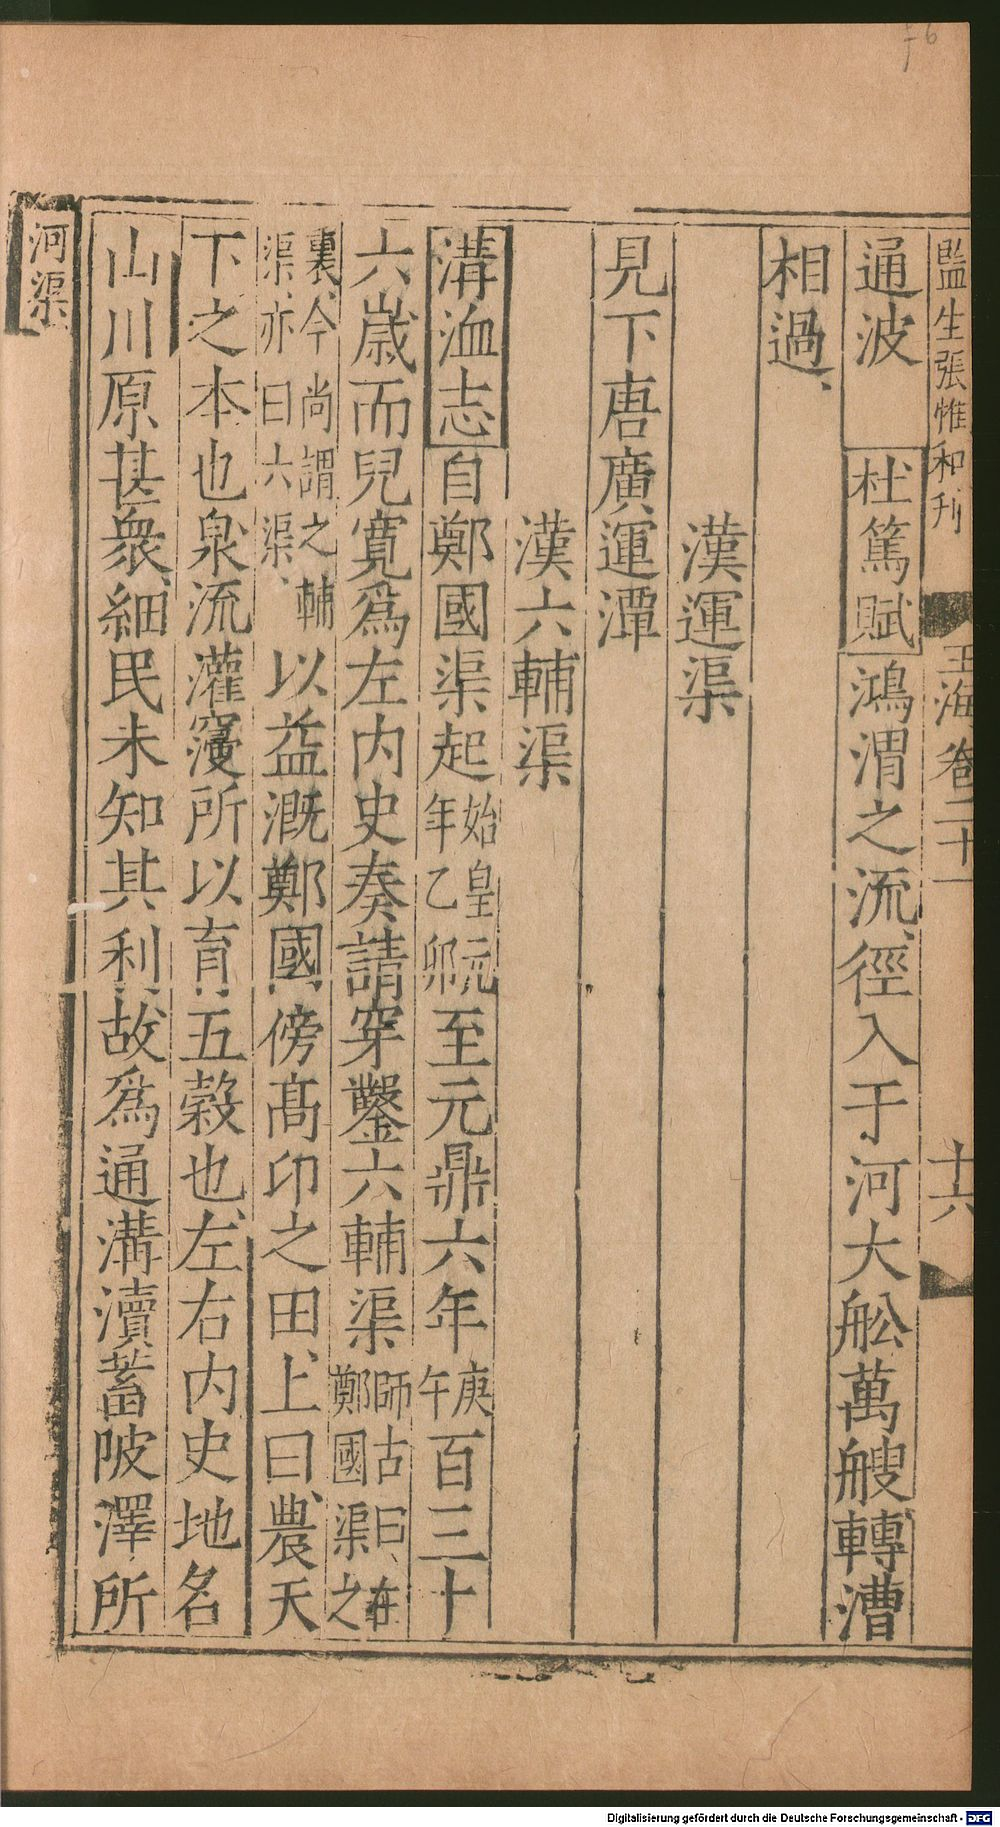 監生張惟和刊
玉海卷二十一
十六
通波 杜篤賦鴻渭之流、徑入于河大舩萬艘轉漕
相過、
漢運渠
見下唐廣運潭
漢六輔渠
溝洫志自鄭國渠起始皇元年乙卯至元鼎六年庚午百三十
六歲而兒寬爲左内史奏請穿鑿六輔渠師古曰、在鄭國渠之
裏、今尚謂之輔渠、亦曰六渠、以益溉鄭國傍髙卬之田、上曰、農天
下之本也、泉流灌寖所以育五榖也、左右内史地名
山川原甚衆、細民未知其利、故爲通溝瀆蓄陂澤所
河渠
Digitalisierung gefördert durch die Deutsche Forschungsgemeinschaft - DFG